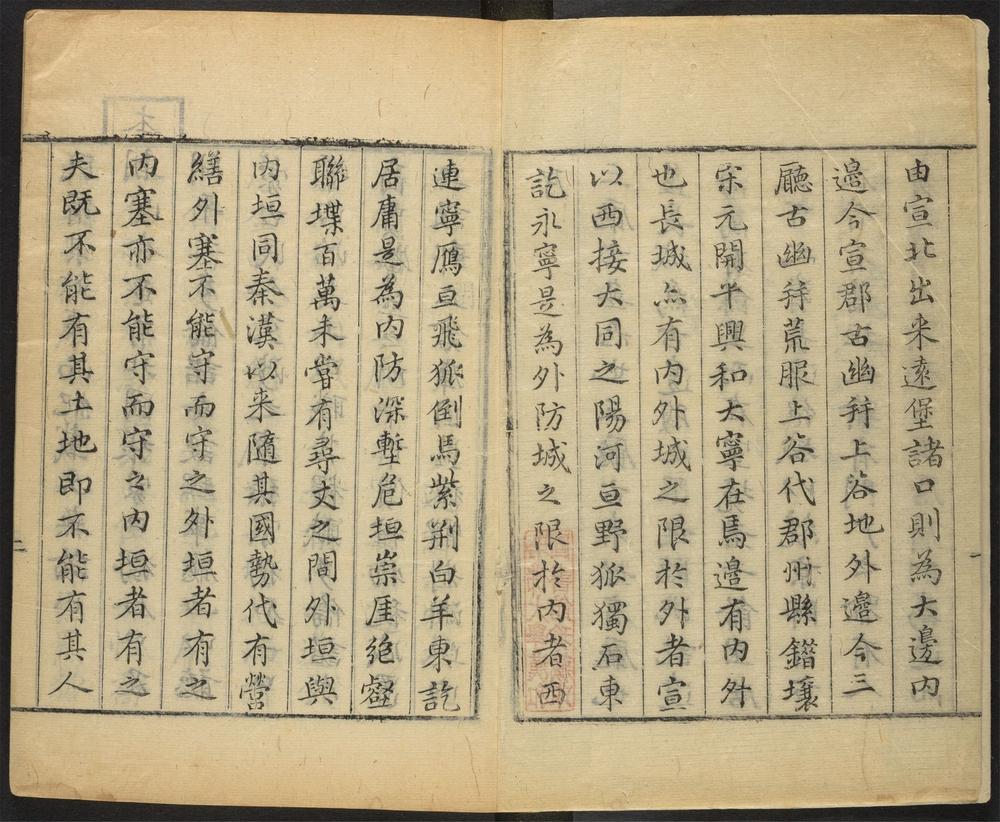 由宣北出来遠堡諸口則為大邊内
邊今宣郡古幽并上谷地外邊今三
廳古幽并荒服上谷代郡州縣錯壤
宋元開平興和大寧在焉邊有内外
也長城亦有内外城之限於外者宣
以西接大同之陽河亘野狐獨石東
訖永寧是為外防城之限於内者西
連寧鴈亘飛狐倒馬紫荆白羊東訖
居庸是為内防深塹危垣崇厓絶壑
聯堞百萬未嘗有尋丈之間外垣與
内垣同秦漢以来随其國勢代有營
繕外塞不能守而守之外垣者有之
内塞亦不能守而守之内垣者有之
夫既不能有其土地即不能有其人
一
二